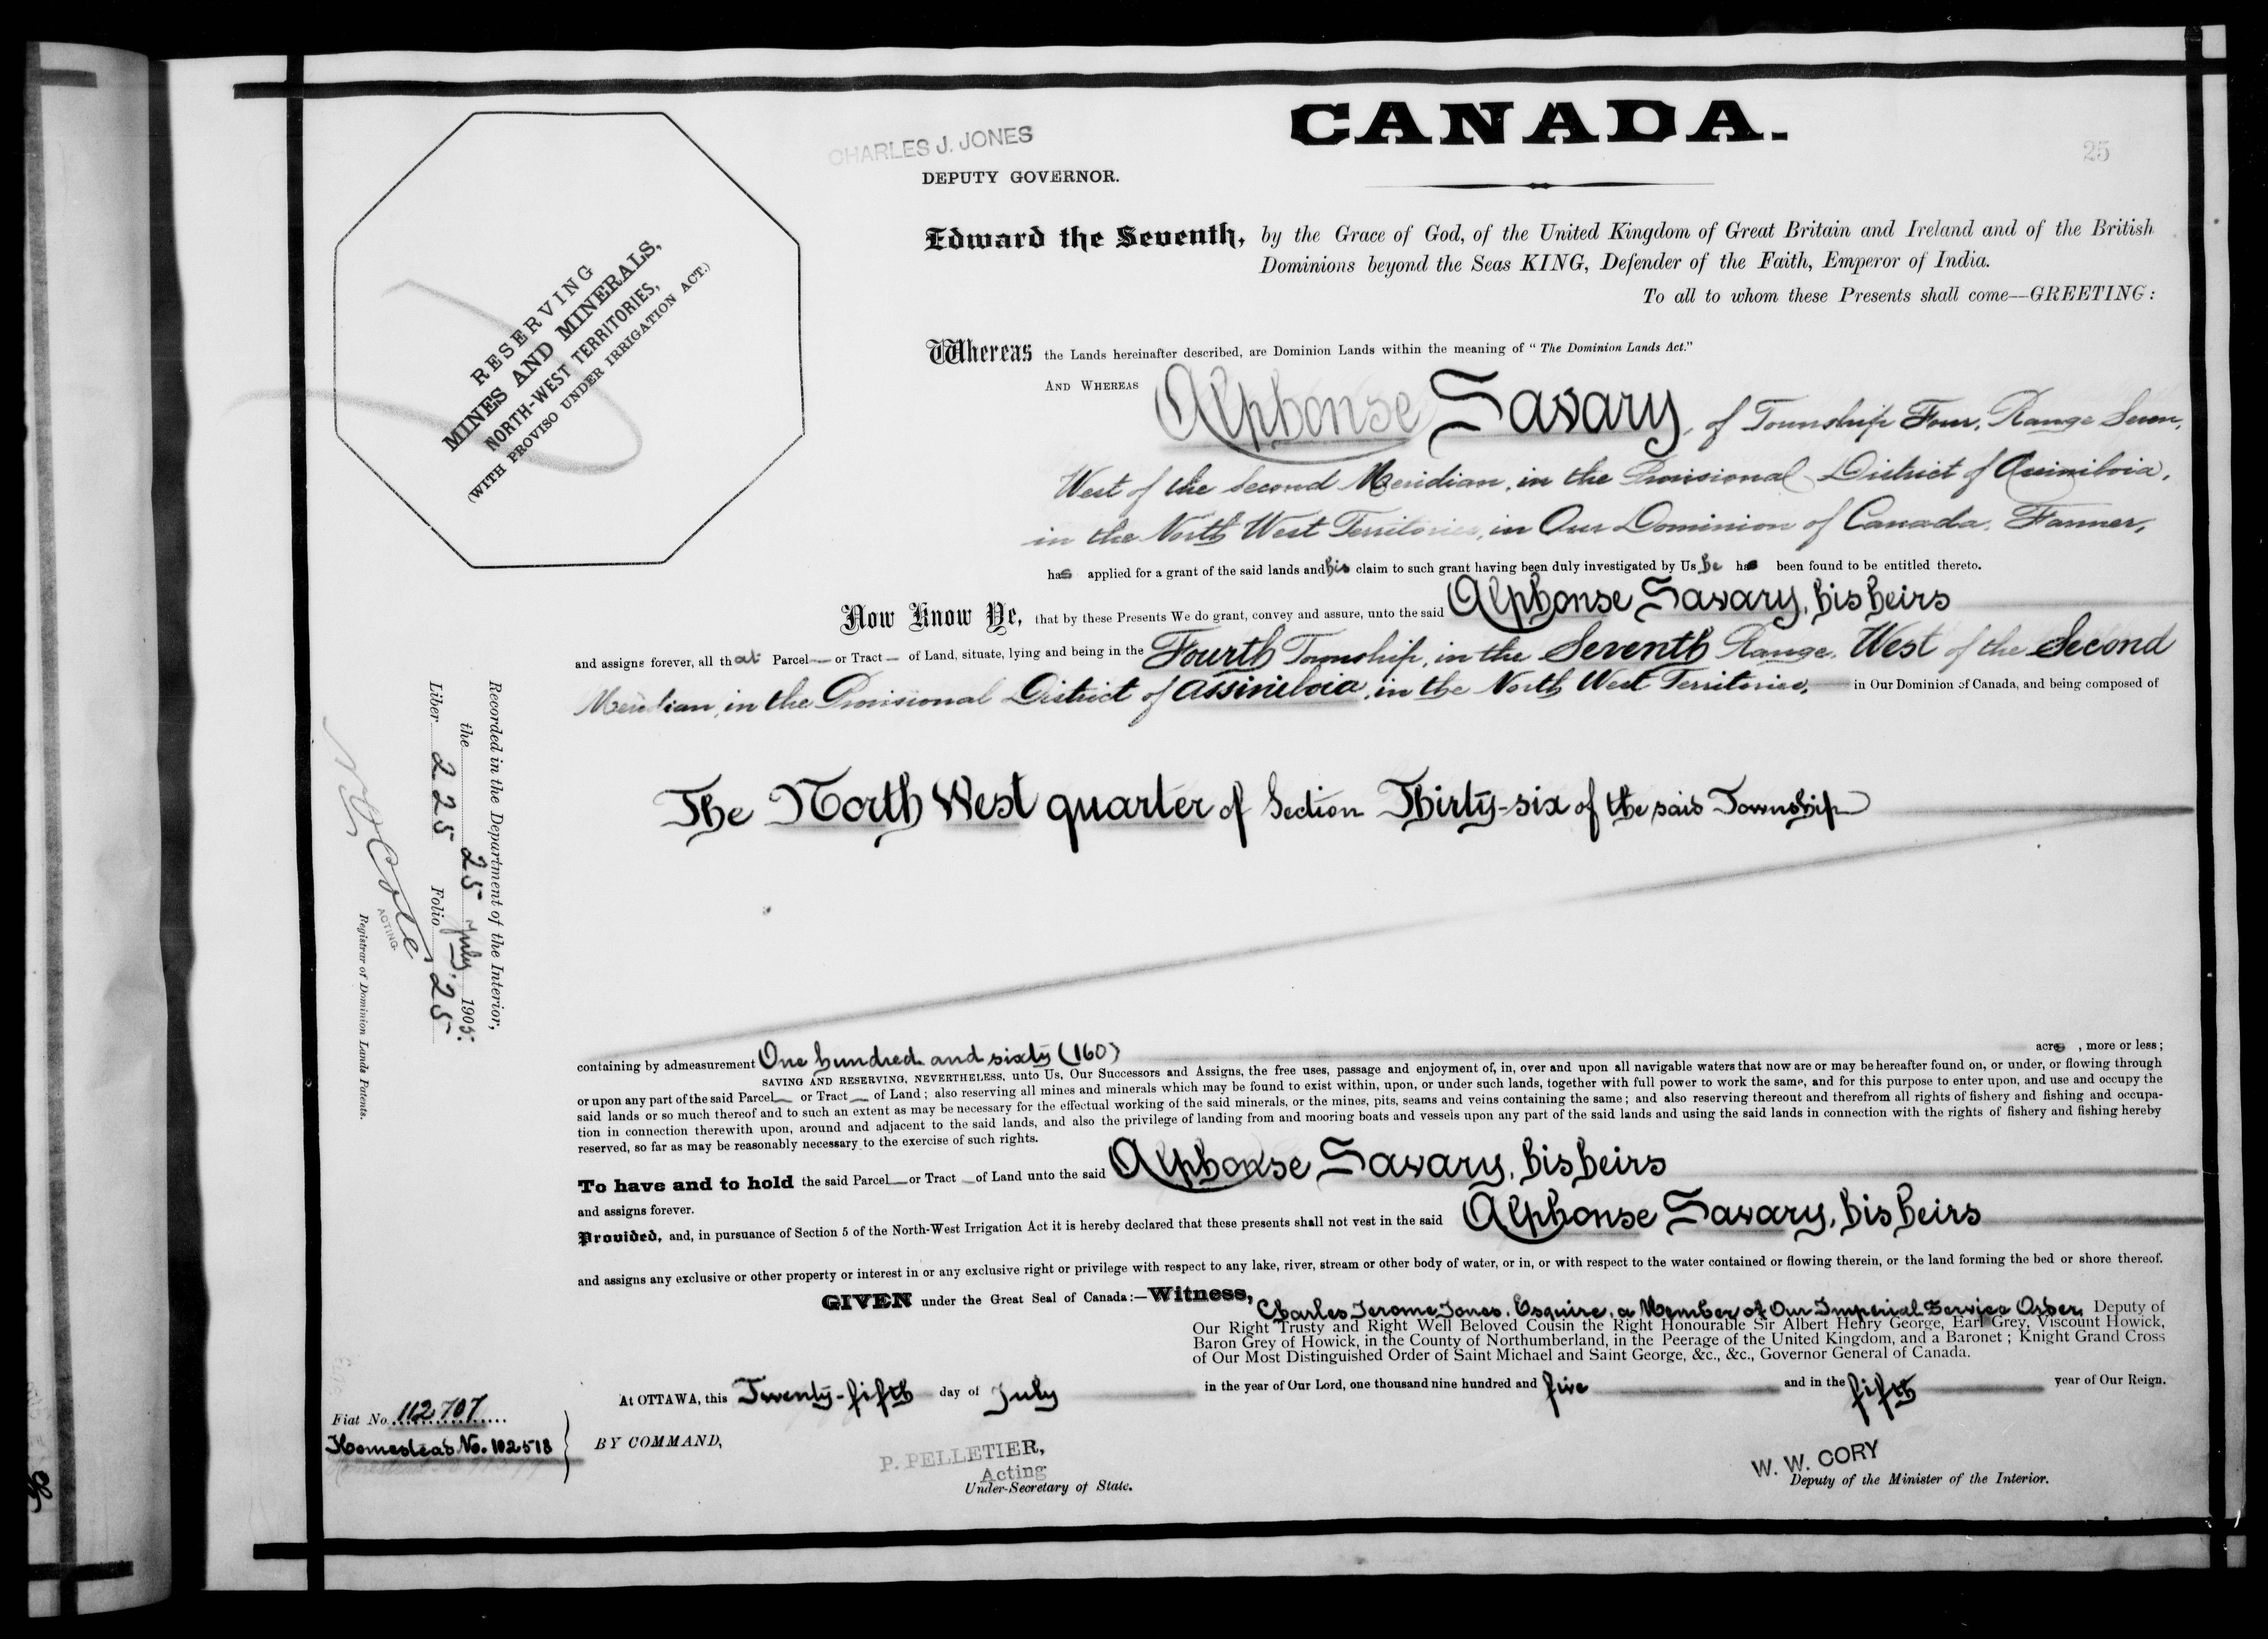 CANADA.
25
CHARLES J. JONES
DEPUTY GOVERNOR.
RESERVING
MINES AND MINERALS,
NORTH-WEST TERRITORIES,
(WITH PROVISO UNDER IRRIGATION ACT.)
Edward the Seventh, by the Grace of God, of the United Kingdom of Great Britain and Ireland and of the British
Dominions beyond the Seas KING, Defender of the Faith, Emperor of India.
To all to whom these Presents shall come—GREETING:
Whereas the Lands hereinafter described, are Dominion Lands within the meaning of "The Dominion Lands Act."
AND WHEREAS Alphonse Savary, of Township Four, Range Seven,
West of the Second Meridian, in the Provisional District of Assiniboia,
in the North West Territories, in Our Dominion of Canada, Farmer,
has applied for a grant of the said lands and his claim to such grant having been duly investigated by Us he has been found to be entitled thereto.
Now Know Ye, that by these Presents We do grant, convey and assure, unto the said Alphonse Savary, his heirs
and assigns forever, all that Parcel or Tract of Land, situate, lying and being in the Fourth Township, in the Seventh Range, West of the Second
Meridian, in the Provisional District of Assiniboia, in the North West Territories, in Our Dominion of Canada, and being composed of
The North West quarter of Section Thirty-six of the said Township
containing by admeasurement One hundred and sixty (160) acres, more or less;
SAVING AND RESERVING, NEVERTHELESS, unto Us, Our Successors and Assigns, the free uses, passage and enjoyment of, in, over and upon all navigable waters that now are or may be hereafter found on, or under, or flowing through
or upon any part of the said Parcel or Tract of Land; also reserving all mines and minerals which may be found to exist within, upon, or under such lands, together with full power to work the same, and for this purpose to enter upon, and use and occupy the
said lands or so much thereof and to such an extent as may be necessary for the effectual working of the said minerals, or the mines, pits, seams and veins containing the same; and also reserving thereout and therefrom all rights of fishery and fishing and occupa-
tion in connection therewith upon, around and adjacent to the said lands, and also the privilege of landing from and mooring boats and vessels upon any part of the said lands and using the said lands in connection with the rights of fishery and fishing hereby
reserved, so far as may be reasonably necessary to the exercise of such rights.
To have and to hold the said Parcel or Tract of Land unto the said Alphonse Savary, his heirs
and assigns forever.
Provided, and, in pursuance of Section 5 of the North-West Irrigation Act it is hereby declared that these presents shall not vest in the said Alphonse Savary, his heirs
and assigns any exclusive or other property or interest in or any exclusive right or privilege with respect to any lake, river, stream or other body of water, or in, or with respect to the water contained or flowing therein, or the land forming the bed or shore thereof.
GIVEN under the Great Seal of Canada:—Witness, Charles Jerome Jones, Esquire, a Member of Our Imperial Service Order, Deputy of
Our Right Trusty and Right Well Beloved Cousin the Right Honourable Sir Albert Henry George, Earl Grey, Viscount Howick,
Baron Grey of Howick, in the County of Northumberland, in the Peerage of the United Kingdom, and a Baronet; Knight Grand Cross
of Our Most Distinguished Order of Saint Michael and Saint George, &c., &c., Governor General of Canada.
At OTTAWA, this Twenty-fifth day of July in the year of Our Lord, one thousand nine hundred and five and in the fifth year of Our Reign.
Fiat No. 112707
Homestead No. 102518
BY COMMAND,
P. PELLETIER,
Acting
Under-Secretary of State.
W. W. CORY
Deputy of the Minister of the Interior.
Recorded in the Department of the Interior,
the 25 July, 1905.
Liber 225 Folio 25
N O Coté
ACTING
Registrar of Dominion Lands Patents.